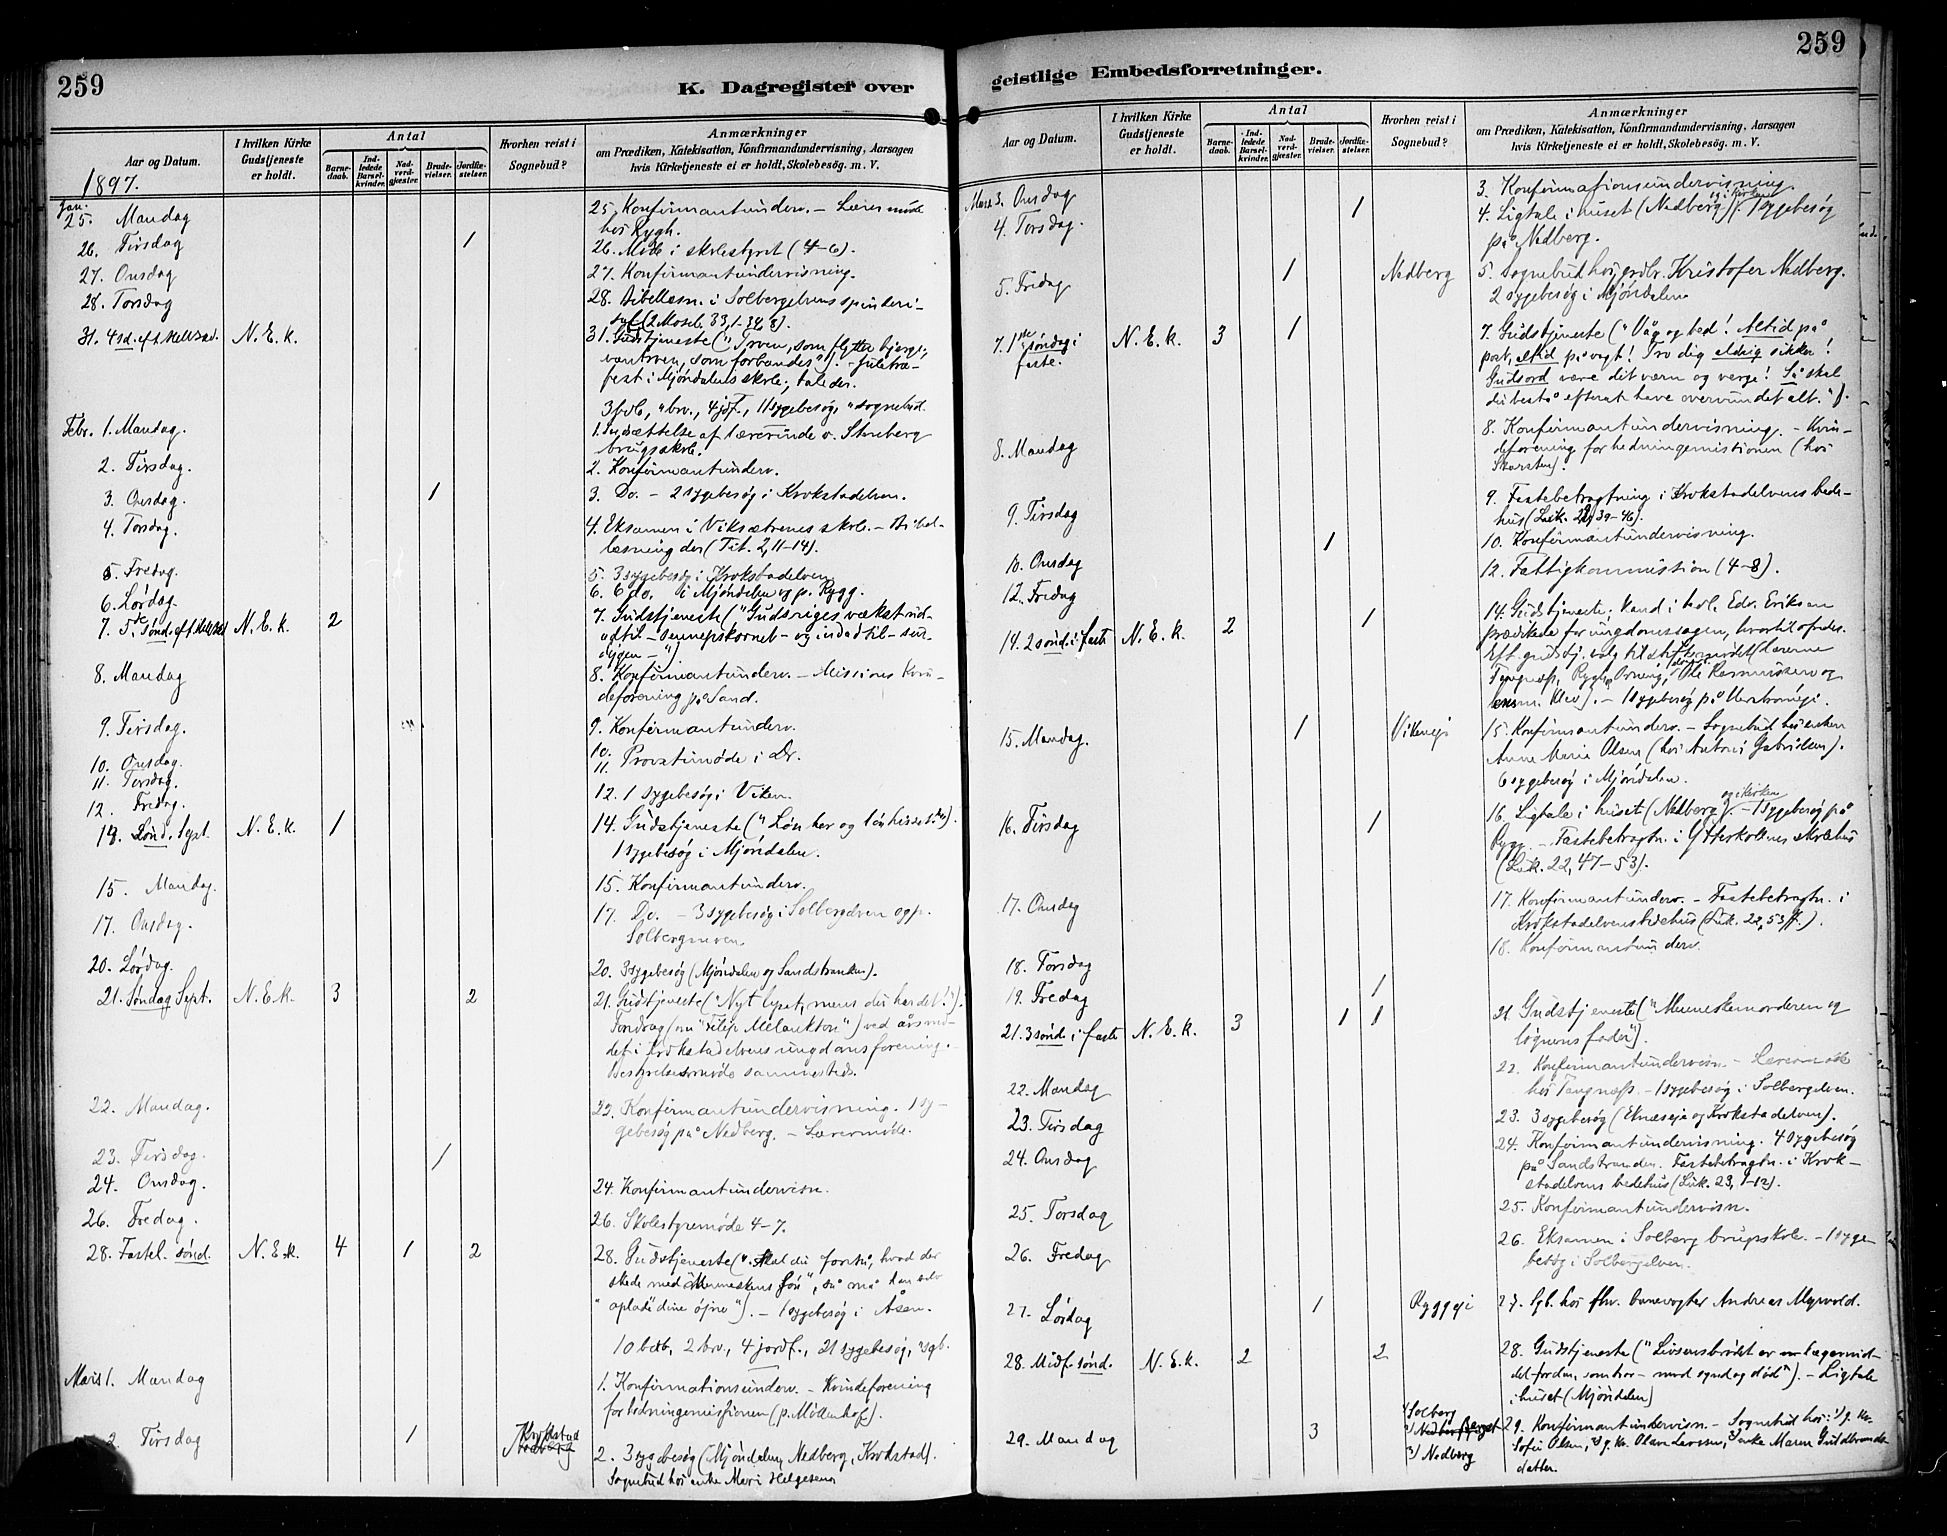 259
K. Dagregister over
Aar og Datum.
I hvilken Kirke Gudstjeneste er holdt.
Antal
Barne-daab.
Ind-ledede Barsel-kvinder.
Nad-verd-gjæster.
Brude-vielser.
Jordfæ-stelser.
Hvorhen reist i Sognebud?
Anmærkninger
om Prædiken, Katekisation, Konfirmandundervisning, Aarsagen
hvis Kirketjeneste ei er holdt, Skolebesøg. m. V.
1897.
Jan.
25. Mandag 25. Konfirmantunderv. – Læremøde
hos Rygh.
26. Tirsdag 1 26. Møde i skolestyret (4-6).
27. Onsdag 27. Konfirmantundervisning.
28. Torsdag 28. Bibellæsn. i Solbergelvens spinderi-
(2 Moseb. 33, 1-
31. 4 sd. eft. Hell3kd. N. E. k. 31. Gudstjeneste ("Troen, som flytter bjerge,
vantroen, som forbandes"). – Juletræ-
fest i Mjøndalens skole; tale der.
3 bdb, " brv., 4 jdf., 11 sygebesøg, " sognebud.
Febr. 1. Mandag. 1. Indsættelse af lærerinde v. Stenberg
brugsskole.
2. Tirsdag. 2. Konfirmantunderv.
3. Onsdag. 1 3. Do. – 2 sygebesøg i Krokstadelven.
4. Torsdag. 4. Eksamen i Viksætrenes skole. – Bibel-
læsning der (Tit. 2, 11-14).
5. Fredag. 5. 3 sygebesøg i Krokstadelven
6. Lørdag. 6. 6 do. i Mjøndalen og p. Rygg.
7. 5te sønd. eft. Hell3kd N. E. k. 2 7. Gudstjeneste ("Gudsriges vækst ud-
adtil – sennepskornet – og indadtil – sur-
dejgen – ")
8. Mandag 8. Konfirmantunderv. – Missions Kvin-
deforening på Sand.
9. Tirsdag. 9. Konfirmantunderv.
10. Onsdag. 10.
11. Torsdag. 11. Provstimøde i Dr.
12. Fredag. 12. 1 sygebesøg i Viken.
14. Sønd. Sept. N. E. k. 1 14. Gudstjeneste ("Løn her og løn hisset").
1 sygebesøg i Mjøndalen.
15. Mandag. 15. Konfirmantunderv.
17. Onsdag. 17. Do. – 3 sygebesøg i Solbergelven og p.
Solbergmoen.
20. Lørdag. 20. 3 sygebesøg (Mjøndalen og Sandstranden).
21. Søndag Sept. N. E. k. 3 2 21. Gudstjeneste ("Nyt lyset, mens du har det!").
Foredrag (om "Filip Melankton") ved årsmø-
det i Krokstadelvens ungdomsforening. –
Bestyrelsesmøde sammesteds.
22. Mandag. 22. Konfirmantundervisning. 1 sy-
gebesøg på Nedberg. – Lærermøde.
23. Tirsdag. 1
24. Onsdag. 24. Konfirmantundervisn.
26. Fredag. 26. Skolestyremøde 4-7.
28. Fastel. sønd. N. E. k. 4 1 2 28. Gudstjeneste ("Skal du forstå, hvad der
skede med "Menneskens Søn", så må han selv
oplade dine øjne"). – 1 sygebesøg i Åsen.
10 bdb, 2 brv., 4 jordf., 21 sygebesøg, " sgb.
Mars 1. Mandag 1. Konfirmationsunderv. – Kvindeforening
for hedningemissionen (p. Møllenhof).
2. Tirsdag 1 Krokstad Nedberg 2. 3 sygebesøg (Mjøndalen, Nedberg, Krokstad).
Sognebud hos enke Mari Helgesen
259
geistlige Embedsforretninger.
Aar og Datum.
I hvilken Kirke Gudstjeneste er holdt.
Antal
Barne-daab.
Ind-ledede Barsel-kvinder.
Nad-verd-gjæster.
Brude-vielser.
Jordfæ-stelser.
Hvorhen reist i Sognebud?
Anmærkninger
om Prædiken, Katekisation, Konfirmandundervisning, Aarsagen
hvis Kirketjeneste ei er holdt, Skolebesøg. m. V.
Mars 3. Onsdag 3. Konfirmationsundervisning.
4. Torsdag. 1 4. Ligtale i huset (Nedberg) og i kirken. 1 sygebesøg
på Nedberg.
5. Fredag 1 Nedberg 5. Sognebud hos grdbr. Kristofer Nedberg.
2 sygebesøg i Mjøndalen
7. 1ste søndag i faste. N. E. k. 3 1 7. Gudstjeneste ("Våg og bed! Altid på
post, altid på vagt! Tro dig aldrig sikker!
Gudsord være dit værn og verge! Så skal
du bestå efterat have overvundet alt.").
8. Mandag 8. Konfirmantundervisning. – Kvin-
deforening for hedningemissionen (hos
Skarsten).
9. Tirsdag 9. Fastebetragtning i Krokstadelvens bede-
hus (Luk. 22, 39-46).
10. Onsdag 1 10. Konfirmantundervisning.
12. Fredag 12. Fattigkommission (4-8).
14. 2 sønd. i faste N. E. k. 2 1 14. Gudstjeneste. Kand i teol. Edv. Eriksen
prædikede for ungdomssagen, hvortil ofredes.
Eft. gudstj. valg til stiftsmødet (lærerne
Tangnæss, Rygh, Orning, Ole Rasmussen og
lensm. Klev). – 1 sygebesøg på
15. Mandag. 1 Vikeneje 15. Konfirmantunderv. – Sognebud hos enken
Anne Marie Olsen (hos Anton Gabrielsen).
6 sygebesøg i Mjøndalen.
16. Tirsdag 1 16. Ligtale i huset (Nedberg) og i kirken. – 1 sygebesøg på
Rygg. – Fastebetragtn. i Ytterkollens skolehus
(Luk. 22, 47-53).
17. Onsdag 17. Konfirmantunderv. – Fastebetragtn. i
Krokstadelvens bedehus (Luk. 22, 53 ff.).
18. Torsdag 18. Konfirmantunderv.
19. Fredag 1
21. 3 sønd. i faste N. E. k. 3 1 1 21. Gudstjeneste ("Menneskemorderen og
løgnens fader").
22. Mandag 22. Konfirmantundervisn. – Læremøde
hos Tangnæss. – 1 sygebesøg i Solbergelven.
23. Tirsdag 23. 3 sygebesøg (Eknæseje og Krokstadelven).
24. Onsdag 24. Konfirmantundervisning. 4 sygebesøg
på Sandstranden. Fastebetragtn. i Krok-
stadelvens bedehus (Luk. 23, 1-12).
25. Torsdag 25. Konfirmantundervisn.
26. Fredag 26. Eksamen i Solberg brugsskole. – 1 syge-
besøg i Solbergelven.
27. Lørdag 1 Ryggeje 27. Sgb. hos fhv. banevogter Andreas Myrvold.
28. Midf. sønd. N. E. k. 2 2 28. Gudstjeneste ("Livsensbrødet er lægemid-
det for den, som tror – mod synd og død"). – Ligtale
i huset (Mjøndalen)
29. Mandag 3 1) Solberg 2) Nedberg 3) Nedberg 29. Konfirmantundervisn. – Sognebud hos: 1) g. kr.
Sofie Olsen, 2) g. kr. Olava Larssen, 3) enke Maren Guldbrands-
datter.